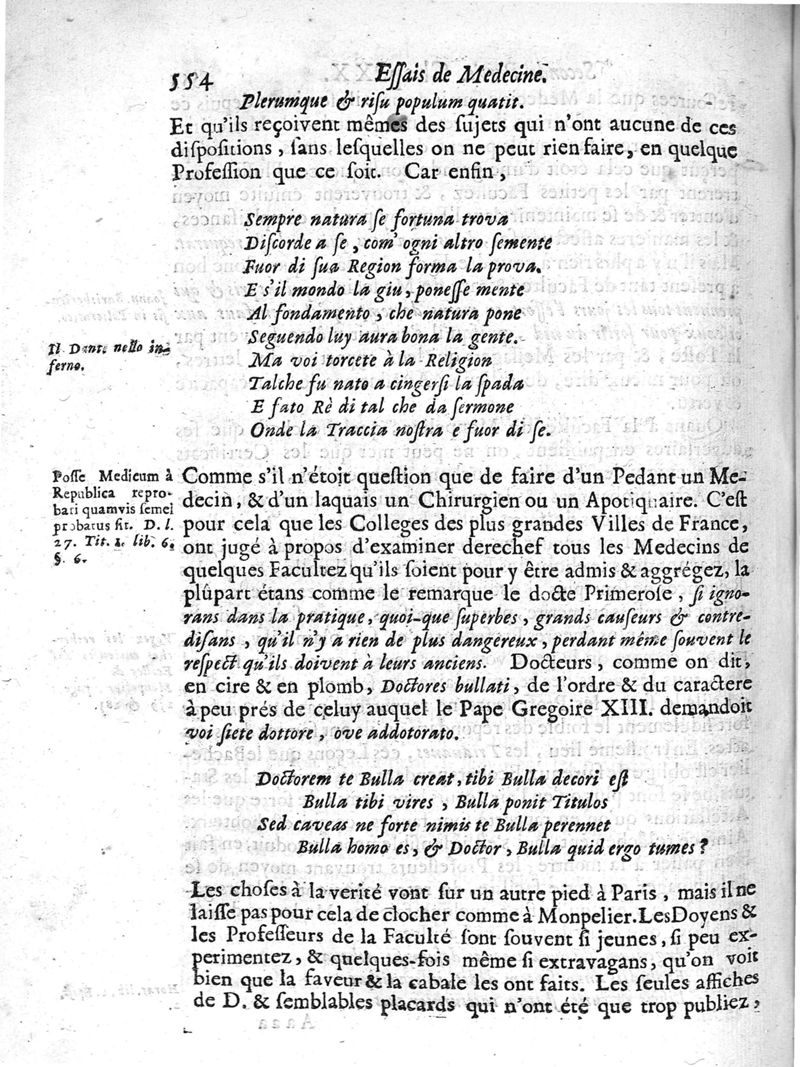 554 Essais de Medecine.
Plerumque & risu populum quatit.
Et qu'ils reçoivent mêmes des sujets qui n'ont aucune de ces
dispositions, sans lesquelles on ne peut rien faire, en quelque
Profession que ce soit. Car enfin,
Sempre natura se fortuna trova
Discorde a se, com' ogni altro semente
Fuor di sua Region forma la prova.
E s'il mondo la giu, ponesse mente
Al fondamento, che natura pone
Seguendo luy aura bona la gente.
Il Dant. nello in-
ferno.
Ma voi torcete à la Religion
Talche fu nato a cingersi la spada
E fato Rè di tal che da sermone
Onde la Traccia nostra e fuor di se.
Posse Medicum à
Republica repro-
bari quamvis semel
probatus sit. D. l.
27. Tit. 1. lib. 6.
§. 6.
Comme s'il n'étoit question que de faire d'un Pedant un Me-
decin, & d'un laquais un Chirurgien ou un Apotiquaire. C'est
pour cela que les Colleges des plus grandes Villes de France,
ont jugé à propos d'examiner derechef tous les Medecins de
quelques Facultez qu'ils soient pour y être admis & aggrégez, la
plûpart étans comme le remarque le docte Primerose, si igno-
rans dans la pratique, quoi-que superbes, grands causeurs & contre-
disans, qu'il n'y a rien de plus dangereux, perdant même souvent le
respect qu'ils doivent à leurs anciens. Docteurs, comme on dit,
en cire & en plomb, Doctores bullati, de l'ordre & du caractere
à peu prés de celuy auquel le Pape Gregoire XIII. demandoit
voi siete dottore, ove addotorato.
Doctorem te Bulla creat, tibi Bulla decori est
Bulla tibi vires, Bulla ponit Titulos
Sed caveas ne forte nimis te Bulla perennet
Bulla homo es, & Doctor, Bulla quid ergo tumes?
Les choses à la verité vont sur un autre pied à Paris, mais il ne
laisse pas pour cela de clocher comme à Monpelier. Les Doyens &
les Professeurs de la Faculté sont souvent si jeunes, si peu ex-
perimentez, & quelques-fois même si extravagans, qu'on voit
bien que la faveur & la cabale les ont faits. Les seules affiches
de D. & semblables placards qui n'ont été que trop publiez,